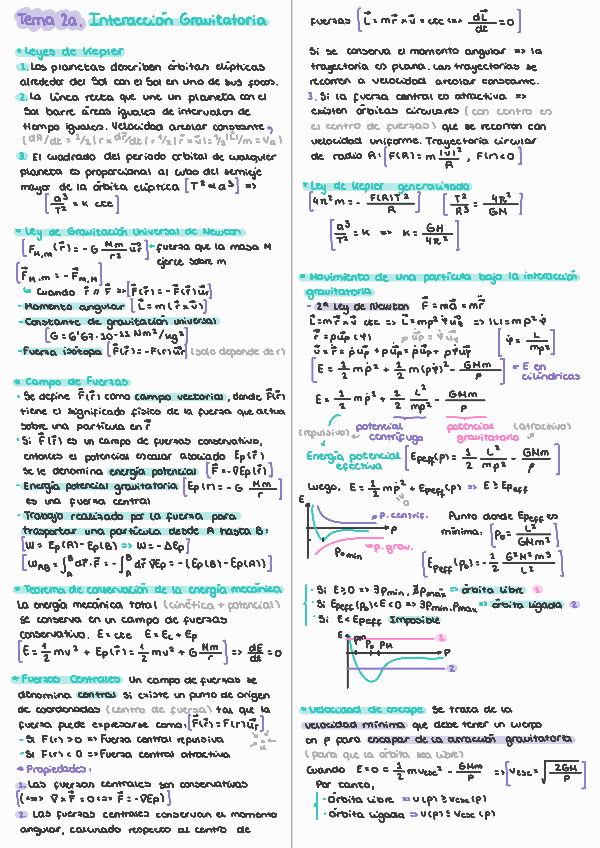 Tema 2a. Interacción Gravitatoria
* Leyes de Kepler
1. Los planetas describen órbitas elípticas
alrededor del Sol con el Sol en uno de sus focos.
2. La línea recta que une un planeta con el
Sol barre áreas iguales de intervalos de
tiempo iguales. Velocidad areolar constante,
3. El cuadrado del periodo orbital de cualquier
planeta es proporcional al cubo del semieje
mayor de la órbita elíptica [T² ∝ a³] =>
[a³/T² = k cte]
* Ley de Gravitación Universal de Newton
fuerza que la masa M
ejerce sobre m
[F⃗M,m = -F⃗m,M]
· Momento angular [L⃗ = m(r⃗ x v⃗)]
· Constante de gravitación universal
[G = 6'67·10⁻¹¹ Nm²/kg²]
· Fuerza isótopa [F⃗(r⃗) = -F(r)u⃗r] (solo depende de r)
* Campo de Fuerzas
· Se define F⃗(r⃗) como campo vectorial, donde F⃗(r⃗)
tiene el significado físico de la fuerza que actúa
sobre una partícula en r⃗
· Si F⃗(r⃗) es un campo de fuerzas conservativo,
entonces el potencial escalar asociado Ep(r⃗)
se le denomina energía potencial [F⃗ = -∇Ep(r⃗)]
· Energía potencial gravitatoria [Ep(r) = -G Mm/r]
es una fuerza central
· Trabajo realizado por la fuerza para
trasportar una partícula desde A hasta B:
[W = Ep(A) - Ep(B) => W = -ΔEp]
[WAB = ∫AB dr⃗·F⃗ = -∫AB dr⃗ ∇Ep = -(Ep(B) - Ep(A))]
* Teorema de conservación de la energía mecánica
La energía mecánica total (cinética + potencial)
se conserva en un campo de fuerzas
conservativo. E = cte E = Ec + Ep
[E = 1/2 mv² + Ep(r⃗) = 1/2 mv² + G Mm/r] => dE/dt = 0
* Fuerzas Centrales Un campo de fuerzas se
denomina central si existe un punto de origen
de coordenadas (centro de fuerza) tal que la
fuerza puede expresarse como: [F⃗(r⃗) = F(r)u⃗r]
- Si F(r) > 0 => Fuerza central repulsiva
- Si F(r) < 0 => Fuerza central atractiva
* Propiedades:
1. Las fuerzas centrales son conservativas
[(<=> ∇ x F⃗ = 0 <=> F⃗ = -∇Ep)]
2. Las fuerzas centrales conservan el momento
angular, calculado respecto al centro de
fuerzas [L⃗ = mr⃗ x v⃗ = cte <=> dL⃗/dt = 0]
Si se conserva el momento angular => la
trayectoria es plana. Las trayectorias se
recorren a velocidad areolar constante.
3. Si la fuerza central es atractiva =>
existen órbitas circulares (con centro en
el centro de fuerzas) que se recorren con
velocidad uniforme. Trayectoria circular
de radio R: [F(R) = m |v|²/R, F(r) < 0]
* Ley de Kepler generalizada
[4π²m = - F(R)T²/R] [T²/R³ = 4π²/GM]
[a³/T² = k => k = GM/4π²]
* Movimiento de una partícula bajo la interacción
gravitatoria
- 2ª Ley de Newton F⃗ = ma⃗ = mr̈⃗
[φ̇ = L/mρ²]
[E = 1/2 mρ̇² + 1/2 m(ρφ̇)² - GMm/ρ] => E en
cilíndricas
E = 1/2 mρ̇² + 1/2 L²/mρ² - GMm/ρ
(repulsivo) potencial centrífugo potencial gravitatoria (atractivo)
Energía potencial efectiva [Epeff(ρ) = 1/2 L²/mρ² - GMm/ρ]
Luego, E = 1/2 mρ̇² + Epeff(ρ) => E ≥ Epeff
E
p. centrif.
ρ
p. grav.
ρo min
Punto donde Epeff es
mínima: [ρo = L²/GMm²]
[Epeff(ρo) = - 1/2 G²M²m³/L²]
· Si E ≥ 0 => ∃ρmin, ∄ρmax => órbita libre 1
· Si Epeff(ρo) < E < 0 => ∃ρmin, ρmax => órbita ligada 2
· Si E < Epeff Imposible
E
1
ρ
2
* Velocidad de escape Se trata de la
velocidad mínima que debe tener un cuerpo
en ρ para escapar de la atracción gravitatoria
(para que la órbita sea libre)
Cuando E = 0 = 1/2 mvesc² - GMm/ρ => [vesc = √(2GM/ρ)]
Por tanto,
· Órbita libre => v(ρ) ≥ vesc(ρ)
· Órbita ligada => v(ρ) ≤ vesc(ρ)